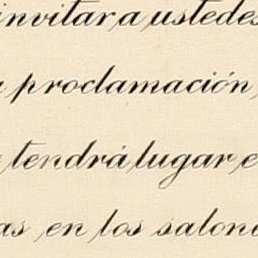 invitar a ustedes
proclamación,
tendrá lugar e
as en los salone